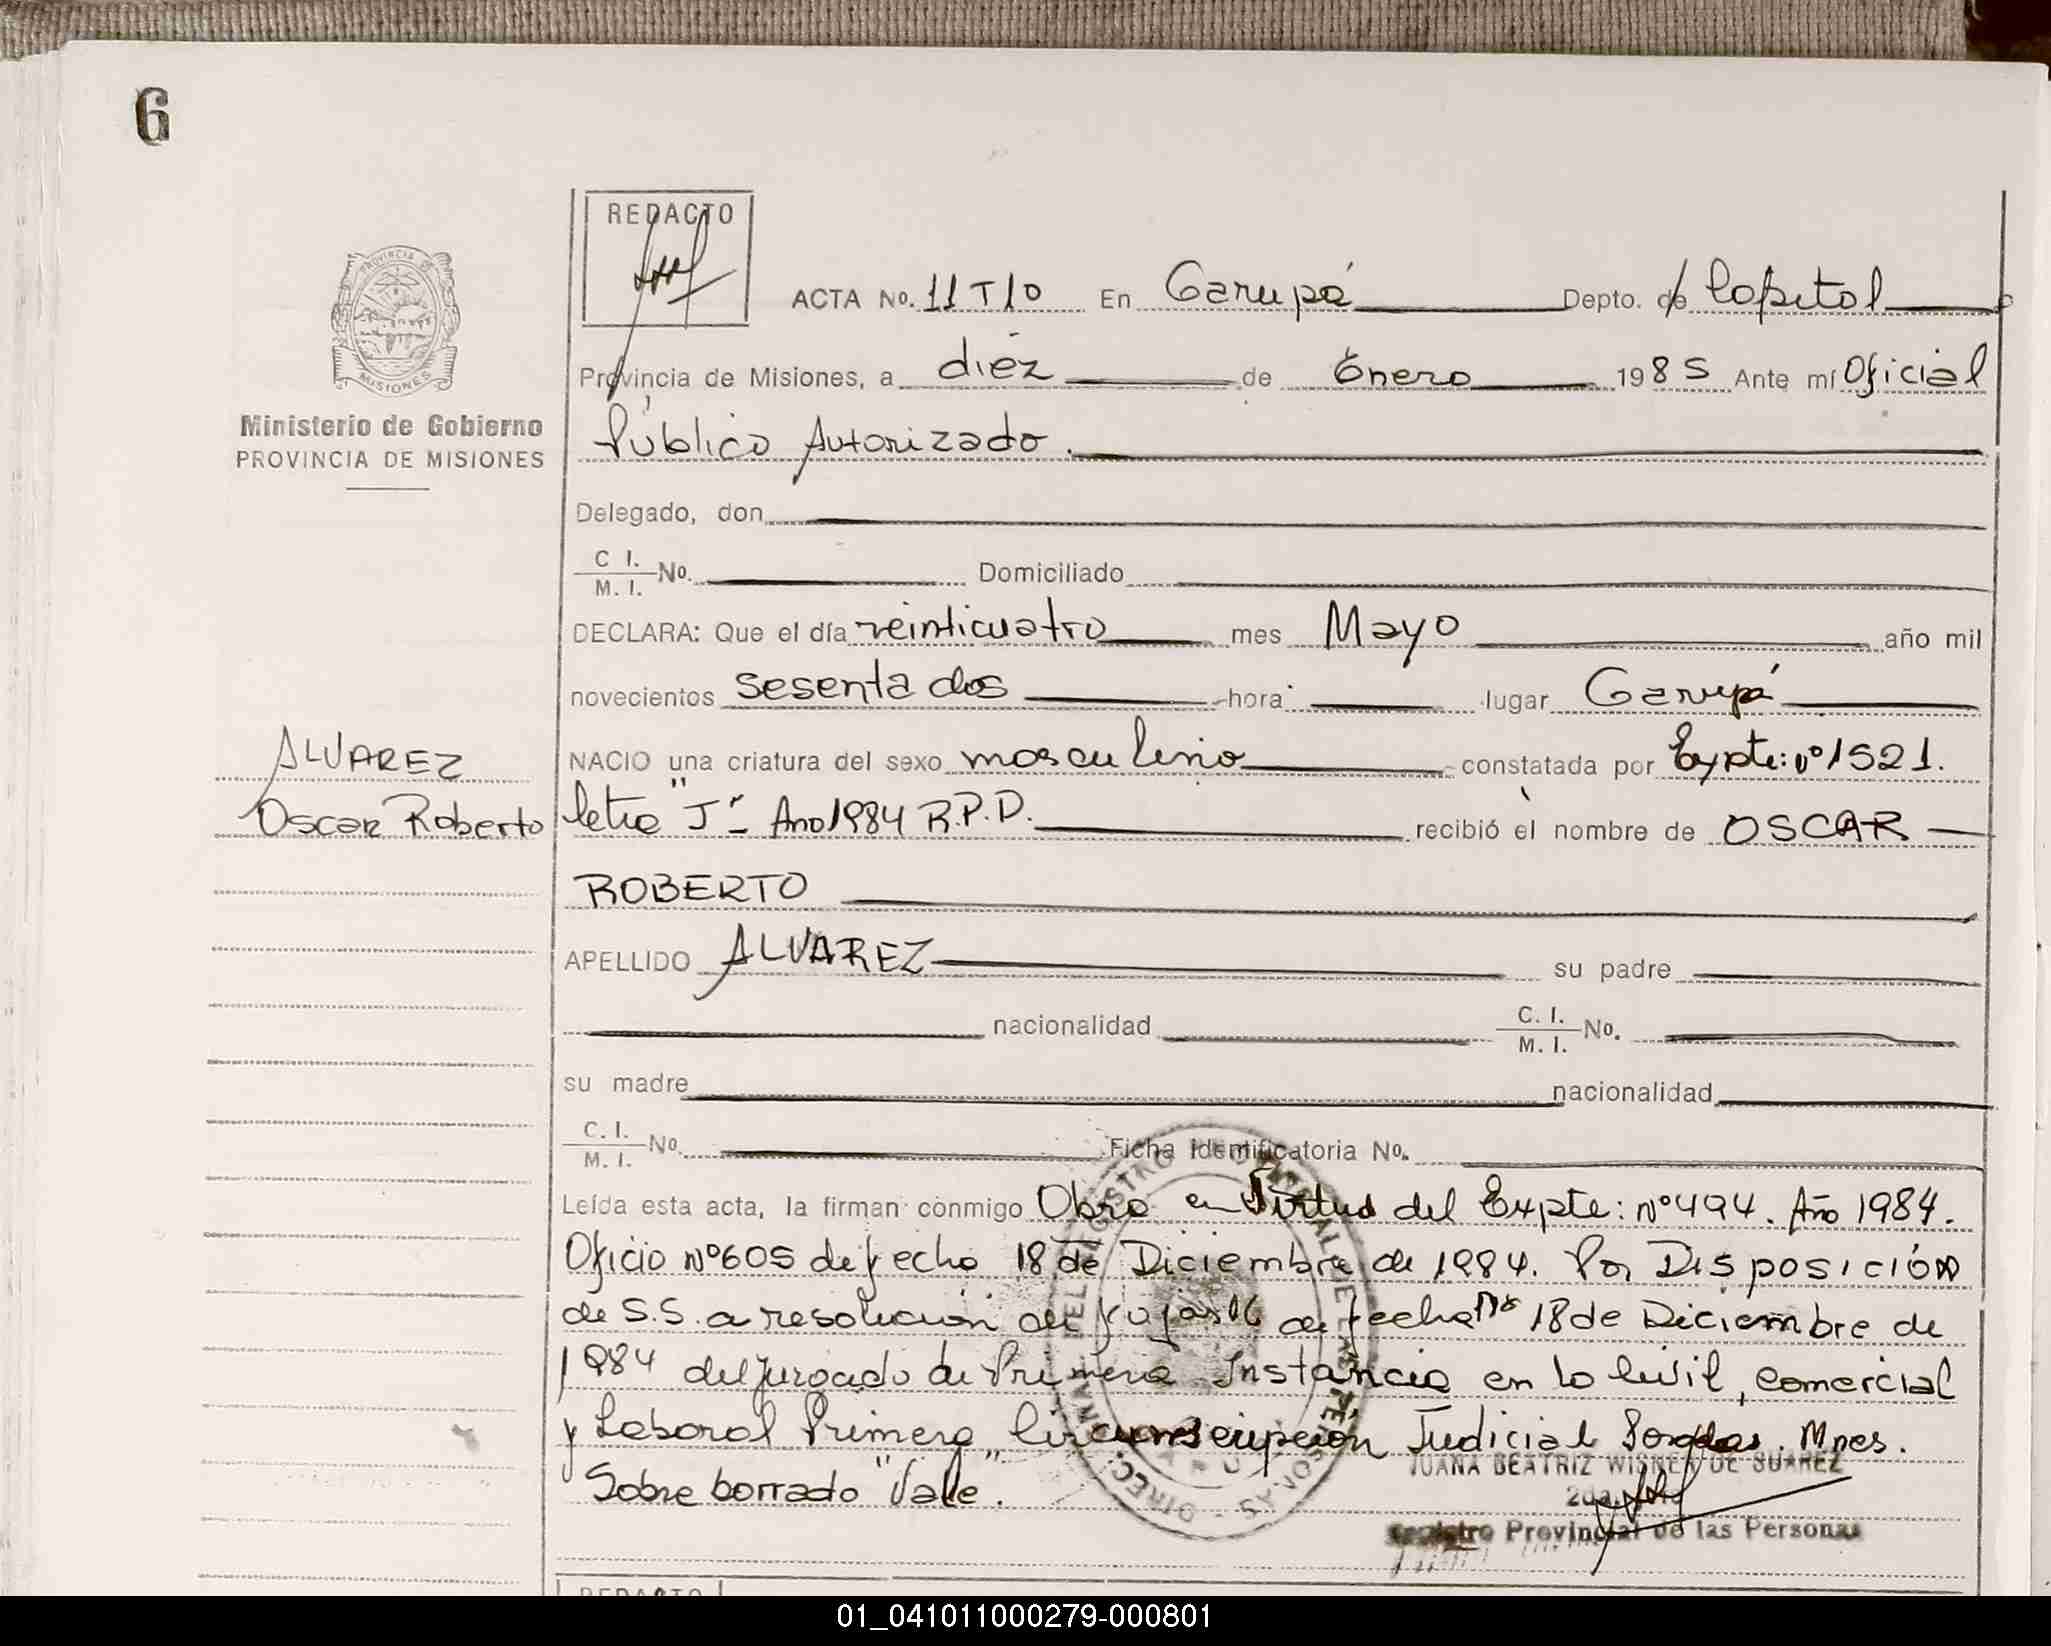 6
REDACTO
PROVINCIA DE
MISIONES
Ministerio de Gobierno
PROVINCIA DE MISIONES
ACTA No. 11 T10 En Garupá Depto. de Capital
Provincia de Misiones, a diez de Enero 1985 Ante mí Oficial
Público Autorizado.
Delegado, don
C I. No. Domiciliado
M. I.
DECLARA: Que el día veinticuatro mes Mayo año mil
novecientos sesenta dos hora lugar Garupá
NACIO una criatura del sexo masculino constatada por Expte: nº 1521.
letra "J" - Año 1984 R.P.D. recibió el nombre de OSCAR
ROBERTO
APELLIDO ALVAREZ su padre
nacionalidad C. I. No.
M. I.
su madre nacionalidad
C. I. No. Ficha Identificatoria No.
M. I.
Leída esta acta, la firman conmigo Obra en Virtud del Expte: nº 494. Año 1984.
Oficio nº 605 de fecha 18 de Diciembre de 1984. Por Disposición
de S.S. a resolución de fecha 18 de Diciembre de
1984 del Jurgado de Primera Instancia en lo Civil, Comercial
y Laboral Primera Circunscripción Judicial Posadas. Mnes.
Sobre borrado "Vale".
ALVAREZ
Oscar Roberto
JUANA BEATRIZ WISNER DE SUAREZ
2da.
Registro Provincial de las Personas
REDACTO
01_041011000279-000801